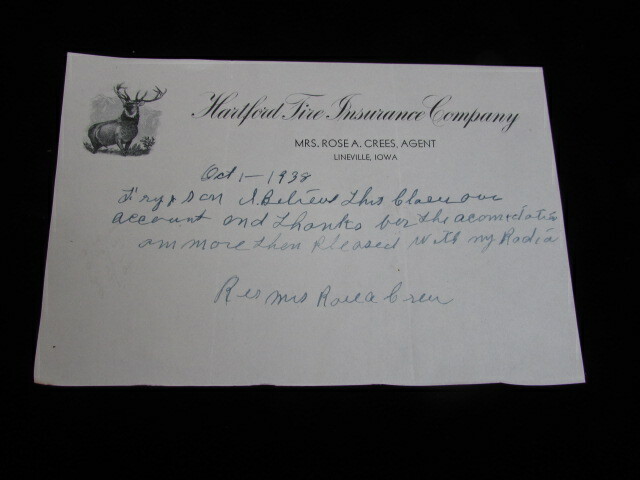 Hartford Fire Insurance Company
MRS. ROSE A. CREES, AGENT
LINEVILLE, IOWA
Oct 1-1938
Fry & Son I Believe this Closes our
account and thanks for the acomidation
am more then pleased with my Radio
Res Mrs Rose A Crees